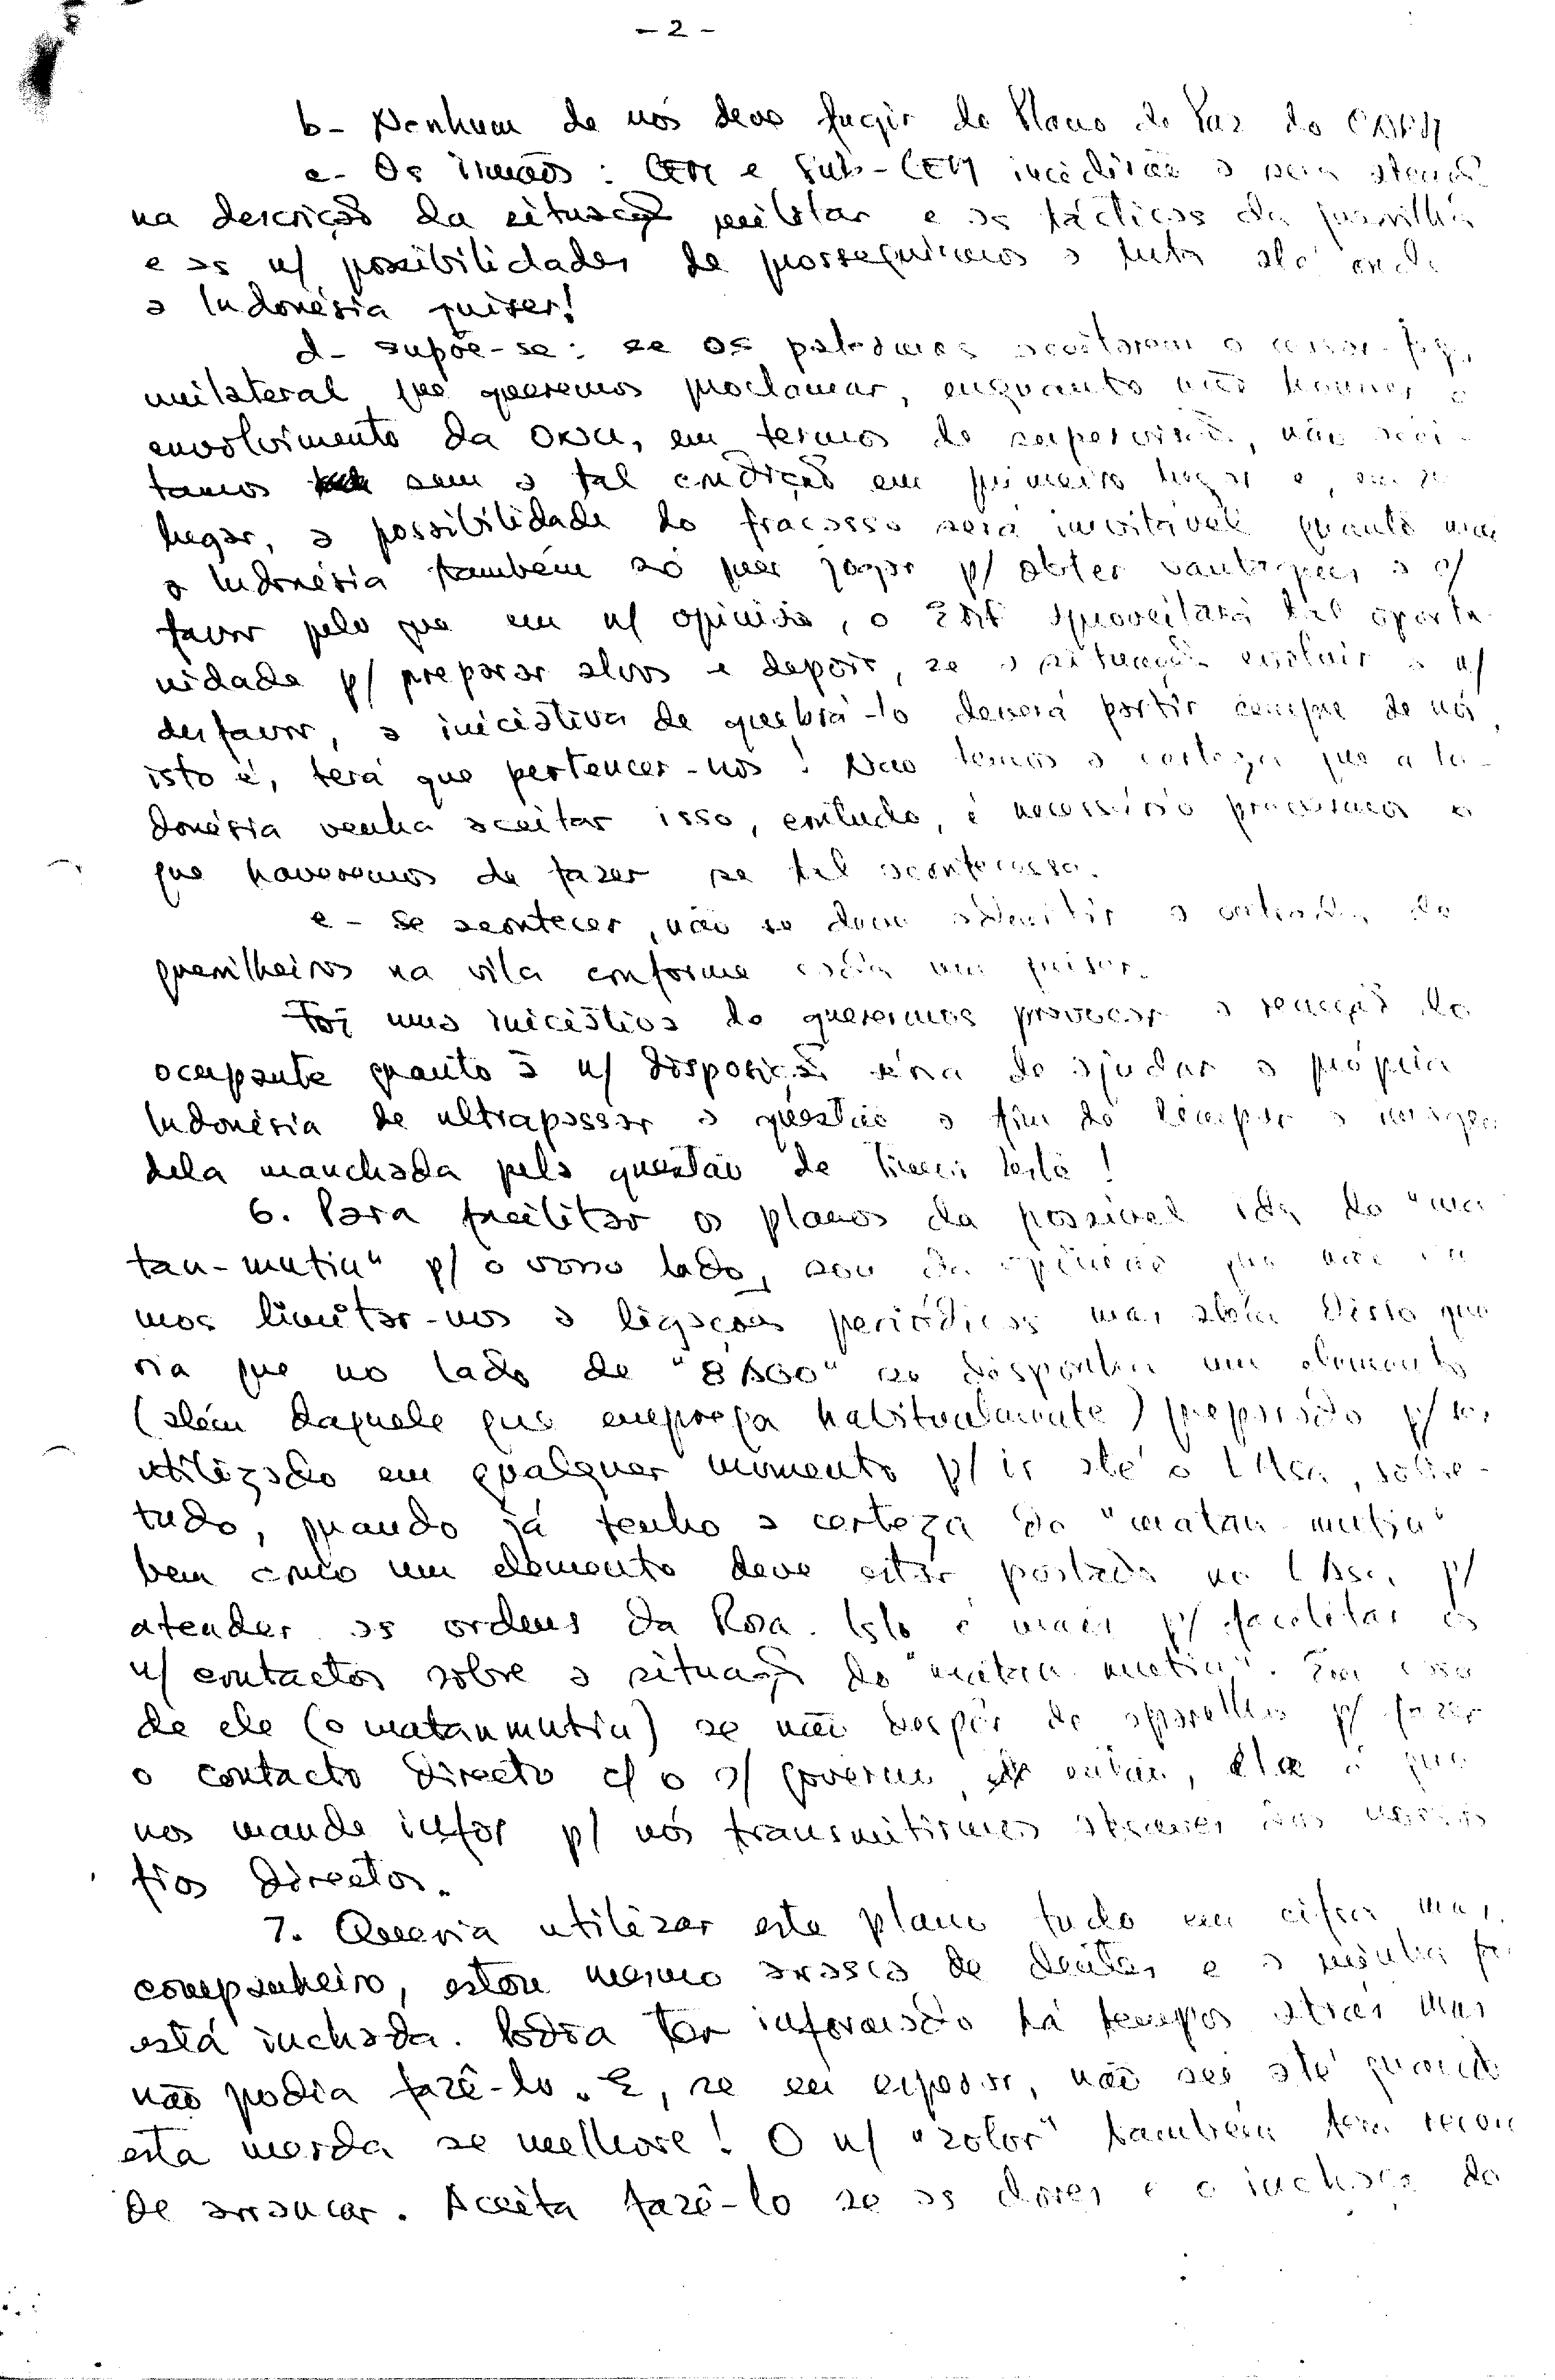 - 2 -
b - Nenhum de nós deve fugir do Plano de Paz do CRRN
c - Os irmãos : CEM e Sub-CEM incidirão o seu
na descrição da situação militar e as tácticas da guerrilha
e as n/ possibilidades de prosseguirmos a luta até onde
a Indonésia quiser!
d - supõe-se: se os aceitarem o cessar-fogo
unilateral que queremos proclamar, enquanto não houver o
envolvimento da ONU, em termos de supervisão, não acei-
tamos sem a tal condição em primeiro lugar e, em 2º
lugar, a possibilidade do fracasso será inevitável quanto mais
a Indonésia também só quer jogar p/ obter vantagens a s/
favor pelo que em n/ opinião, o EMF aproveitará tal oportu-
nidade p/ preparar alvos e depois, se a situação evoluir a n/
desfavor, a iniciativa de quebrá-lo deverá partir sempre de nós,
isto é, terá que pertencer-nos! Não temos a certeza que a In-
donésia venha aceitar isso, contudo, é necessário o
que haveremos de fazer se tal acontecesse.
e - Se acontecer, não se deve admitir a entrada de
guerrilheiros na vila conforme cada um quiser.
Foi uma iniciativa de querermos provocar a reacção do
ocupante quanto à n/ disposição séria de ajudar a própria
Indonésia de ultrapassar a questão a fim de limpar a imagem
dela manchada pela questão de Timor Leste!
6. Para facilitar os planos da possível ida do "ma
tan-mutin" p/ o vosso lado, sou da opinião que não
mos limitar-nos a ligações periódicas mas além disto que
ria que no lado de se disponha um elemento
(além daquele que emprega habitualmente) preparado p/ ser
utilizado em qualquer momento p/ ir até o sobre-
tudo, quando já tenho a certeza do "matan-mutin"
bem como um elemento deve estar postado no p/
atender as ordens da Rosa. Isto é mais p/ facilitar os
n/ contactos sobre a situação do "matan-mutin". Em caso
de ele (o matanmutin) se não dispôr de aparelho p/ fazer
o contacto directo c/ o s/ governo, então, ele é que
nos mande infor p/ nós transmitirmos através dos nossos
fios directos.
7. Queria utilizar este plano tudo em cifra mas,
companheiro, estou mesmo à rasca de dentes e a minha
está inchada. Podia ter informado há tempos atrás mas
não podia fazê-lo. E, se eu esperar, não sei até quando
esta merda se melhore! O n/ "zolor" também tem
de arrancar. Aceita fazê-lo se as dores e o inchaço do